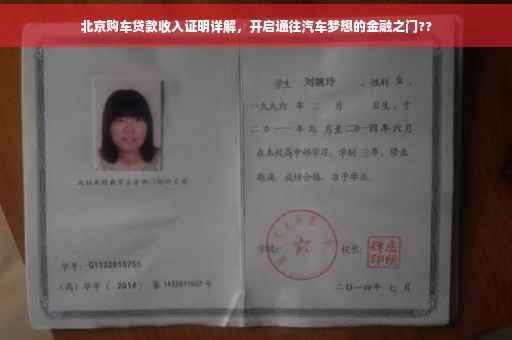 北京购车贷款收入证明详解，开启通往汽车梦想的金融之门??
学生 刘婉玲 ，性别 女 ，
一九九六 年 二 月 日生，于
二0一一年九 月至二0一四年六月
在本校高中部学习，学制 三年，修业
期满，成绩合格，准予毕业。
学号：G1132010755
(高) 毕字 ( 2014 ) 第 1432011027 号
学校：
校长：
二〇一四年 七 月